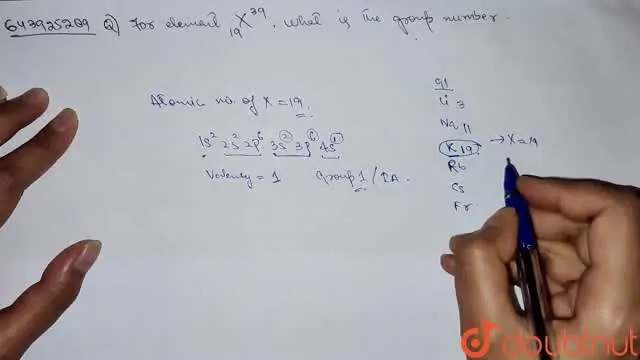 643925209 Q) For element ₁₉X³⁹, what is the group number.
Atomic no. of X = 19.
1s² 2s² 2p⁶ 3s² 3p⁶ 4s¹
Valency = 1 Group 1 / IA.
g1
Li 3
Na 11
K 19. → X = 19
Rb
Cs
Fr
doubtnut